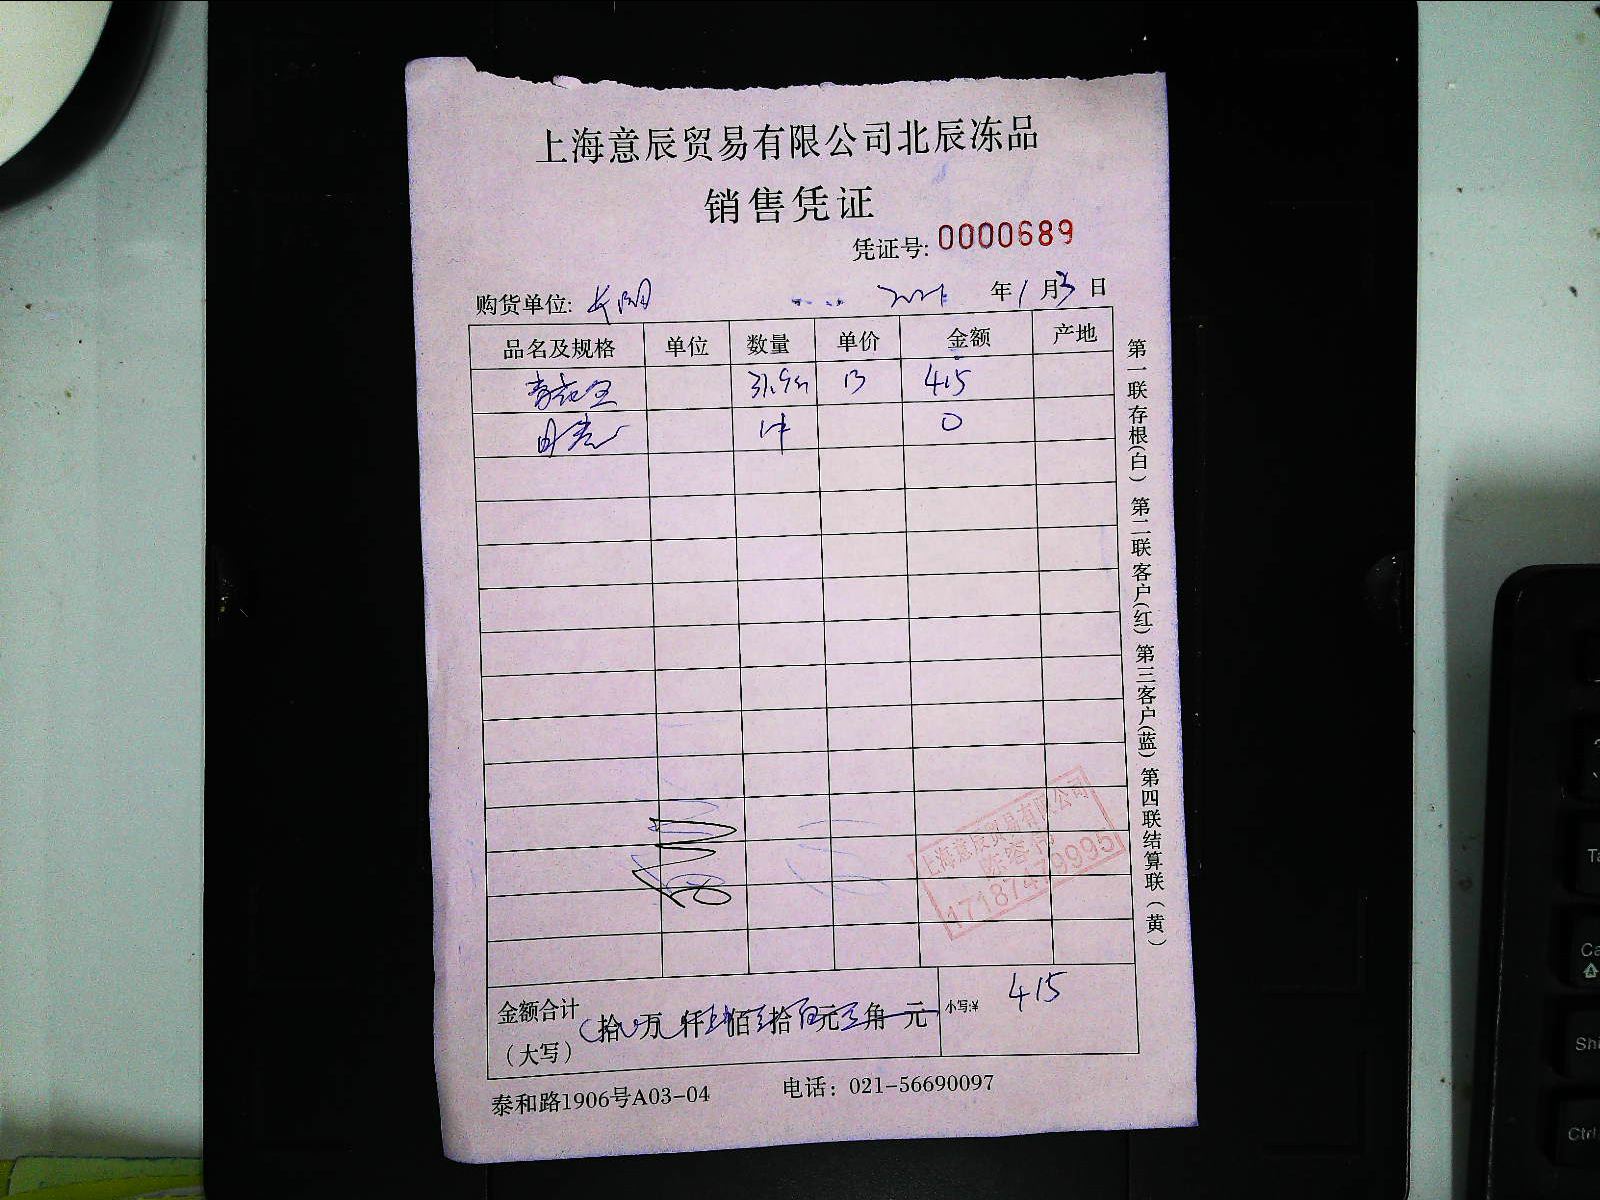 上海意辰贸易有限公司北辰冻品
销售凭证
凭证号: 0000689
购货单位: 年1月3日
品名及规格 单位 数量 单价 金额 产地
13 415
1件 0
上海意辰贸易有限公司
17187479995
金额合计 拾 万 仟 佰 拾 元 角 元 小写:¥ 415
（大写）
泰和路1906号A03-04 电话：021-56690097
第一联存根(白) 第二联客户(红) 第三客户(蓝) 第四联结算联（黄）